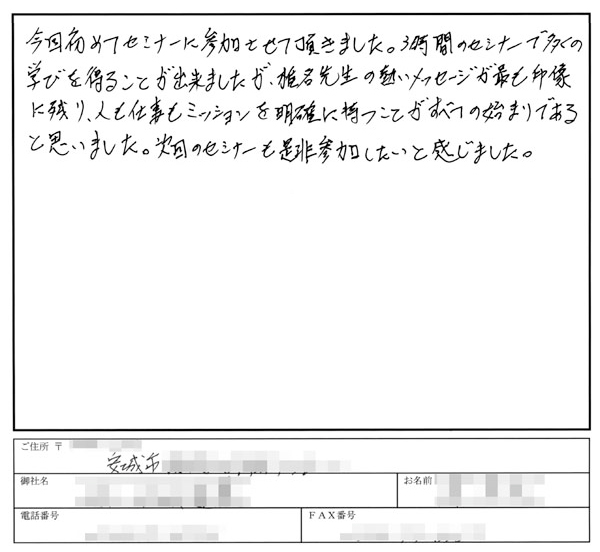 今回初めてセミナーに参加させて頂きました。3時間のセミナーで多くの
学びを得ることが出来ましたが、椎名先生の熱いメッセージが最も印象
に残り、人も仕事もミッションを明確に持つことがすべての始まりである
と思いました。次回のセミナーも是非参加したいと感じました。
ご住所 〒
安城市
御社名 お名前
電話番号 FAX番号